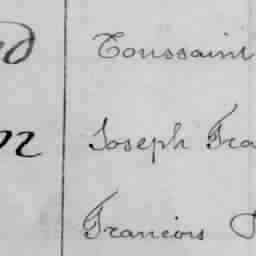 Toussaint
Joseph Fra
Francois